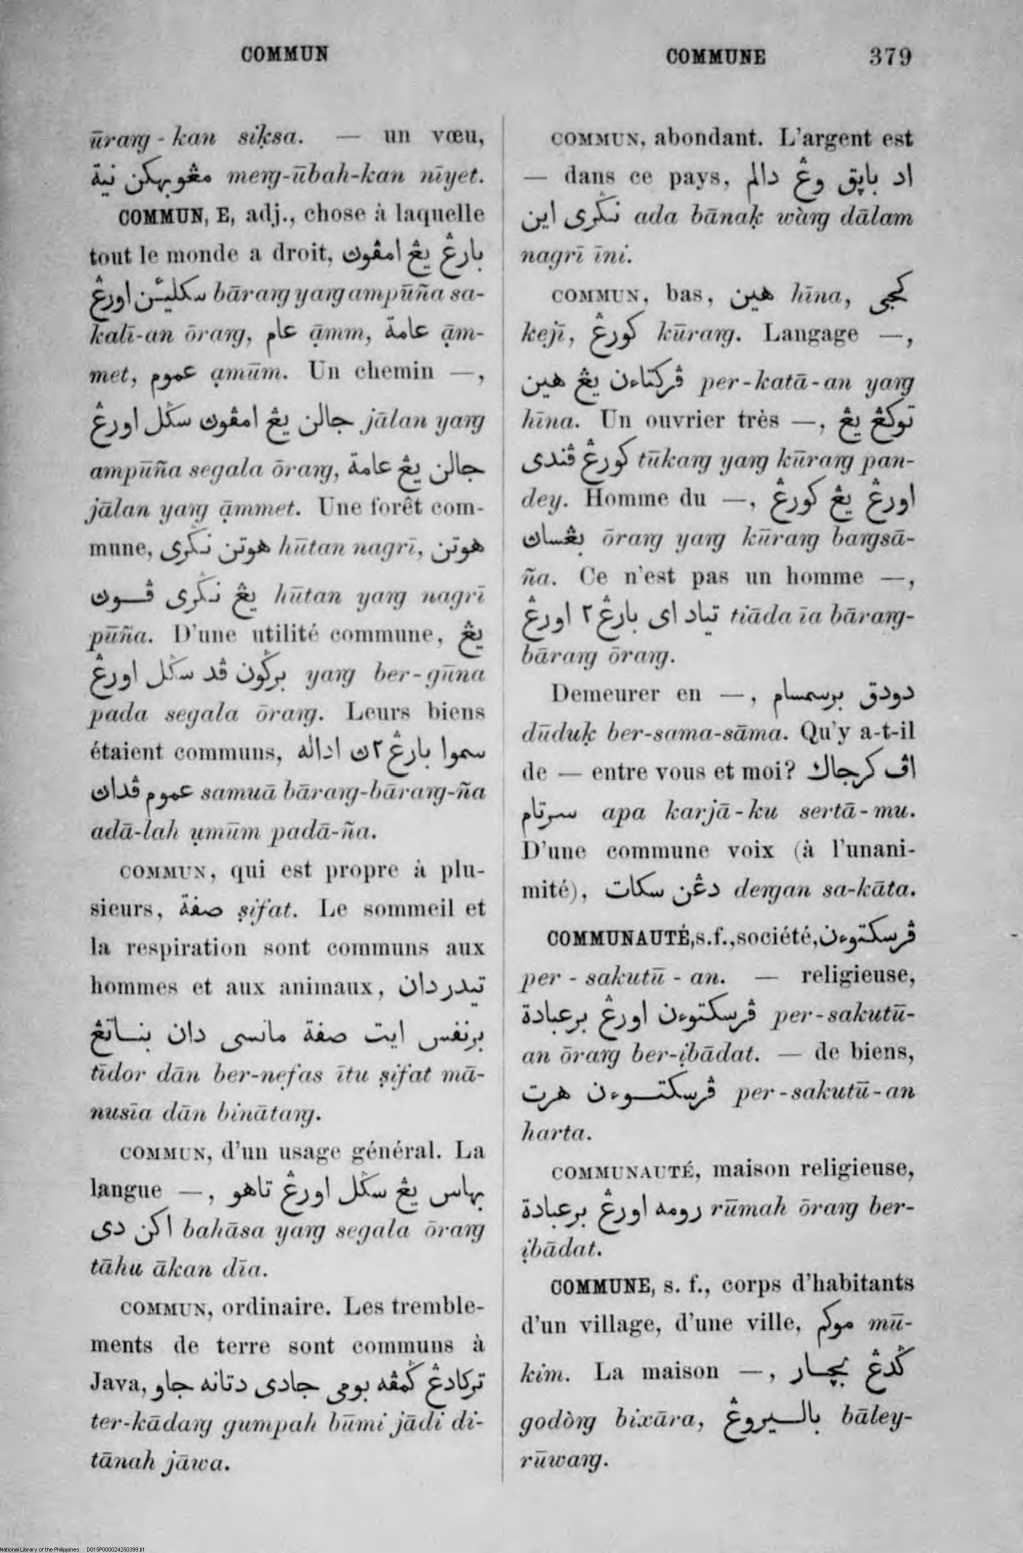 COMMUN
COMMUNE 379
ūraṅg-kan siḳsa. — un vœu,
مڠوبهكن نية meṅg-ūbah-kan nīyet.
COMMUN, E, adj., chose à laquelle
tout le monde a droit, بارڠ يڠ امڤوڽ
سكلين اورڠ bāraṅg yaṅg ampūña sa-
kalī-an ōraṅg, عام ạ̄mm, عامة ạ̄m-
met, عموم ạmūm. Un chemin —,
جالن يڠ امڤوڽ سڬل اورڠ jālan yaṅg
ampūña segala ōraṅg, جالن يڠ عامة
jālan yaṅg ạ̄mmet. Une forêt com-
mune, هوتن نڬري hūtan nagrī, هوتن
يڠ نڬري ڤوڽ hūtan yaṅg nagrī
pūña. D'une utilité commune, يڠ
برڬون ڤد سڬل اورڠ yaṅg ber-gūna
pada segala ōraṅg. Leurs biens
étaient communs, سموا بارڠ٢ڽ اداله
عموم ڤداڽ samuā bāraṅg-bāraṅg-ña
adā-lah ụmūm padā-ña.
COMMUN, qui est propre à plu-
sieurs, صفة ṣifat. Le sommeil et
la respiration sont communs aux
hommes et aux animaux, تيدر دان
برنفس ايت صفة مانسي دان بناتڠ
tīdor dān ber-nefas ītu ṣifat mā-
nusīa dān binātaṅg.
COMMUN, d'un usage général. La
langue —, بهاس يڠ سڬل اورڠ تاهو
اكن دي bahāsa yaṅg segala ōraṅg
tāhu ākan dīa.
COMMUN, ordinaire. Les tremble-
ments de terre sont communs à
Java, تركادڠ ڬمڤه بومي جادي دتانه جاو
ter-kādaṅg gumpah būmi jādi di-
tānah jāwa.
COMMUN, abondant. L'argent est
— dans ce pays, اد باڽق وڠ دالم
نڬري اين ada bāñaḳ wàṅg dālam
nagrī īni.
COMMUN, bas, هين hīna, كجي
kejī, كورڠ kūraṅg. Langage —,
ڤركتاءن يڠ هين per-katā-an yaṅg
hīna. Un ouvrier très —, توكڠ يڠ
كورڠ ڤندي tūkaṅg yaṅg kūraṅg pan-
dey. Homme du —, اورڠ يڠ كورڠ
بڠساڽ ōraṅg yaṅg kūraṅg baṅgsā-
ña. Ce n'est pas un homme —,
تياد اي بارڠ٢ اورڠ tiāda īa bāraṅg-
bāraṅg ōraṅg.
Demeurer en —, دودق برسمسام
dūduḳ ber-sama-sāma. Qu'y a-t-il
de — entre vous et moi? اڤ كرجاك
سرتام apa karjā-ku sertā-mu.
D'une commune voix (à l'unani-
mité), دڠن سكات deṅgan sa-kāta.
COMMUNAUTÉ, s.f., société, ڤرسكتوءن
per-sakutū-an. — religieuse,
ڤرسكتوءن اورڠ برعبادة per-sakutū-
an ōraṅg ber-ịbādat. — de biens,
ڤرسكتوءن هرت per-sakutū-an
harta.
COMMUNAUTÉ, maison religieuse,
رومه اورڠ برعبادة rūmah ōraṅg ber-
ịbādat.
COMMUNE, s. f., corps d'habitants
d'un village, d'une ville, موكم mū-
kim. La maison —, ڬدڠ بچار
godòṅg bixāra, باليروڠ bāley-
rūwaṅg.
National Library of the Philippines